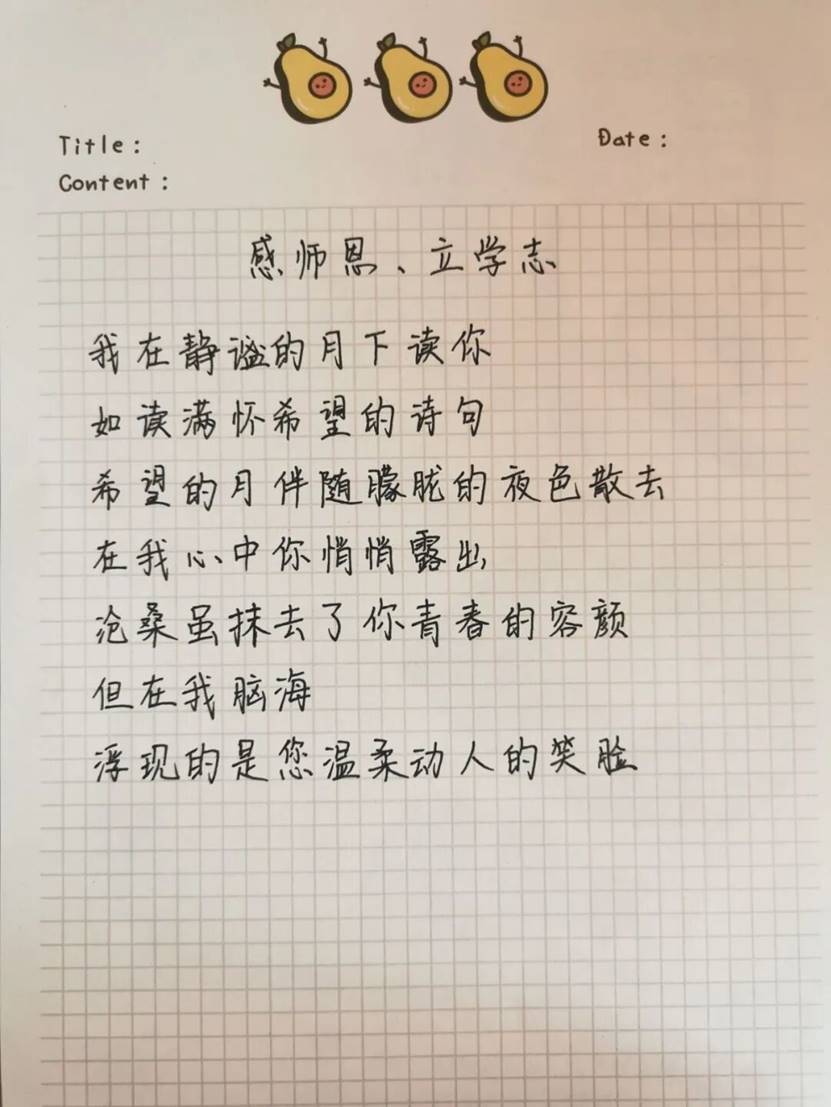 Title:
Date:
Content:
感师恩、立学志
我在静谧的月下读你
如读满怀希望的诗句
希望的月伴随朦胧的夜色散去
在我心中你悄悄露出
沧桑虽抹去了你青春的容颜
但在我脑海
浮现的是您温柔动人的笑脸